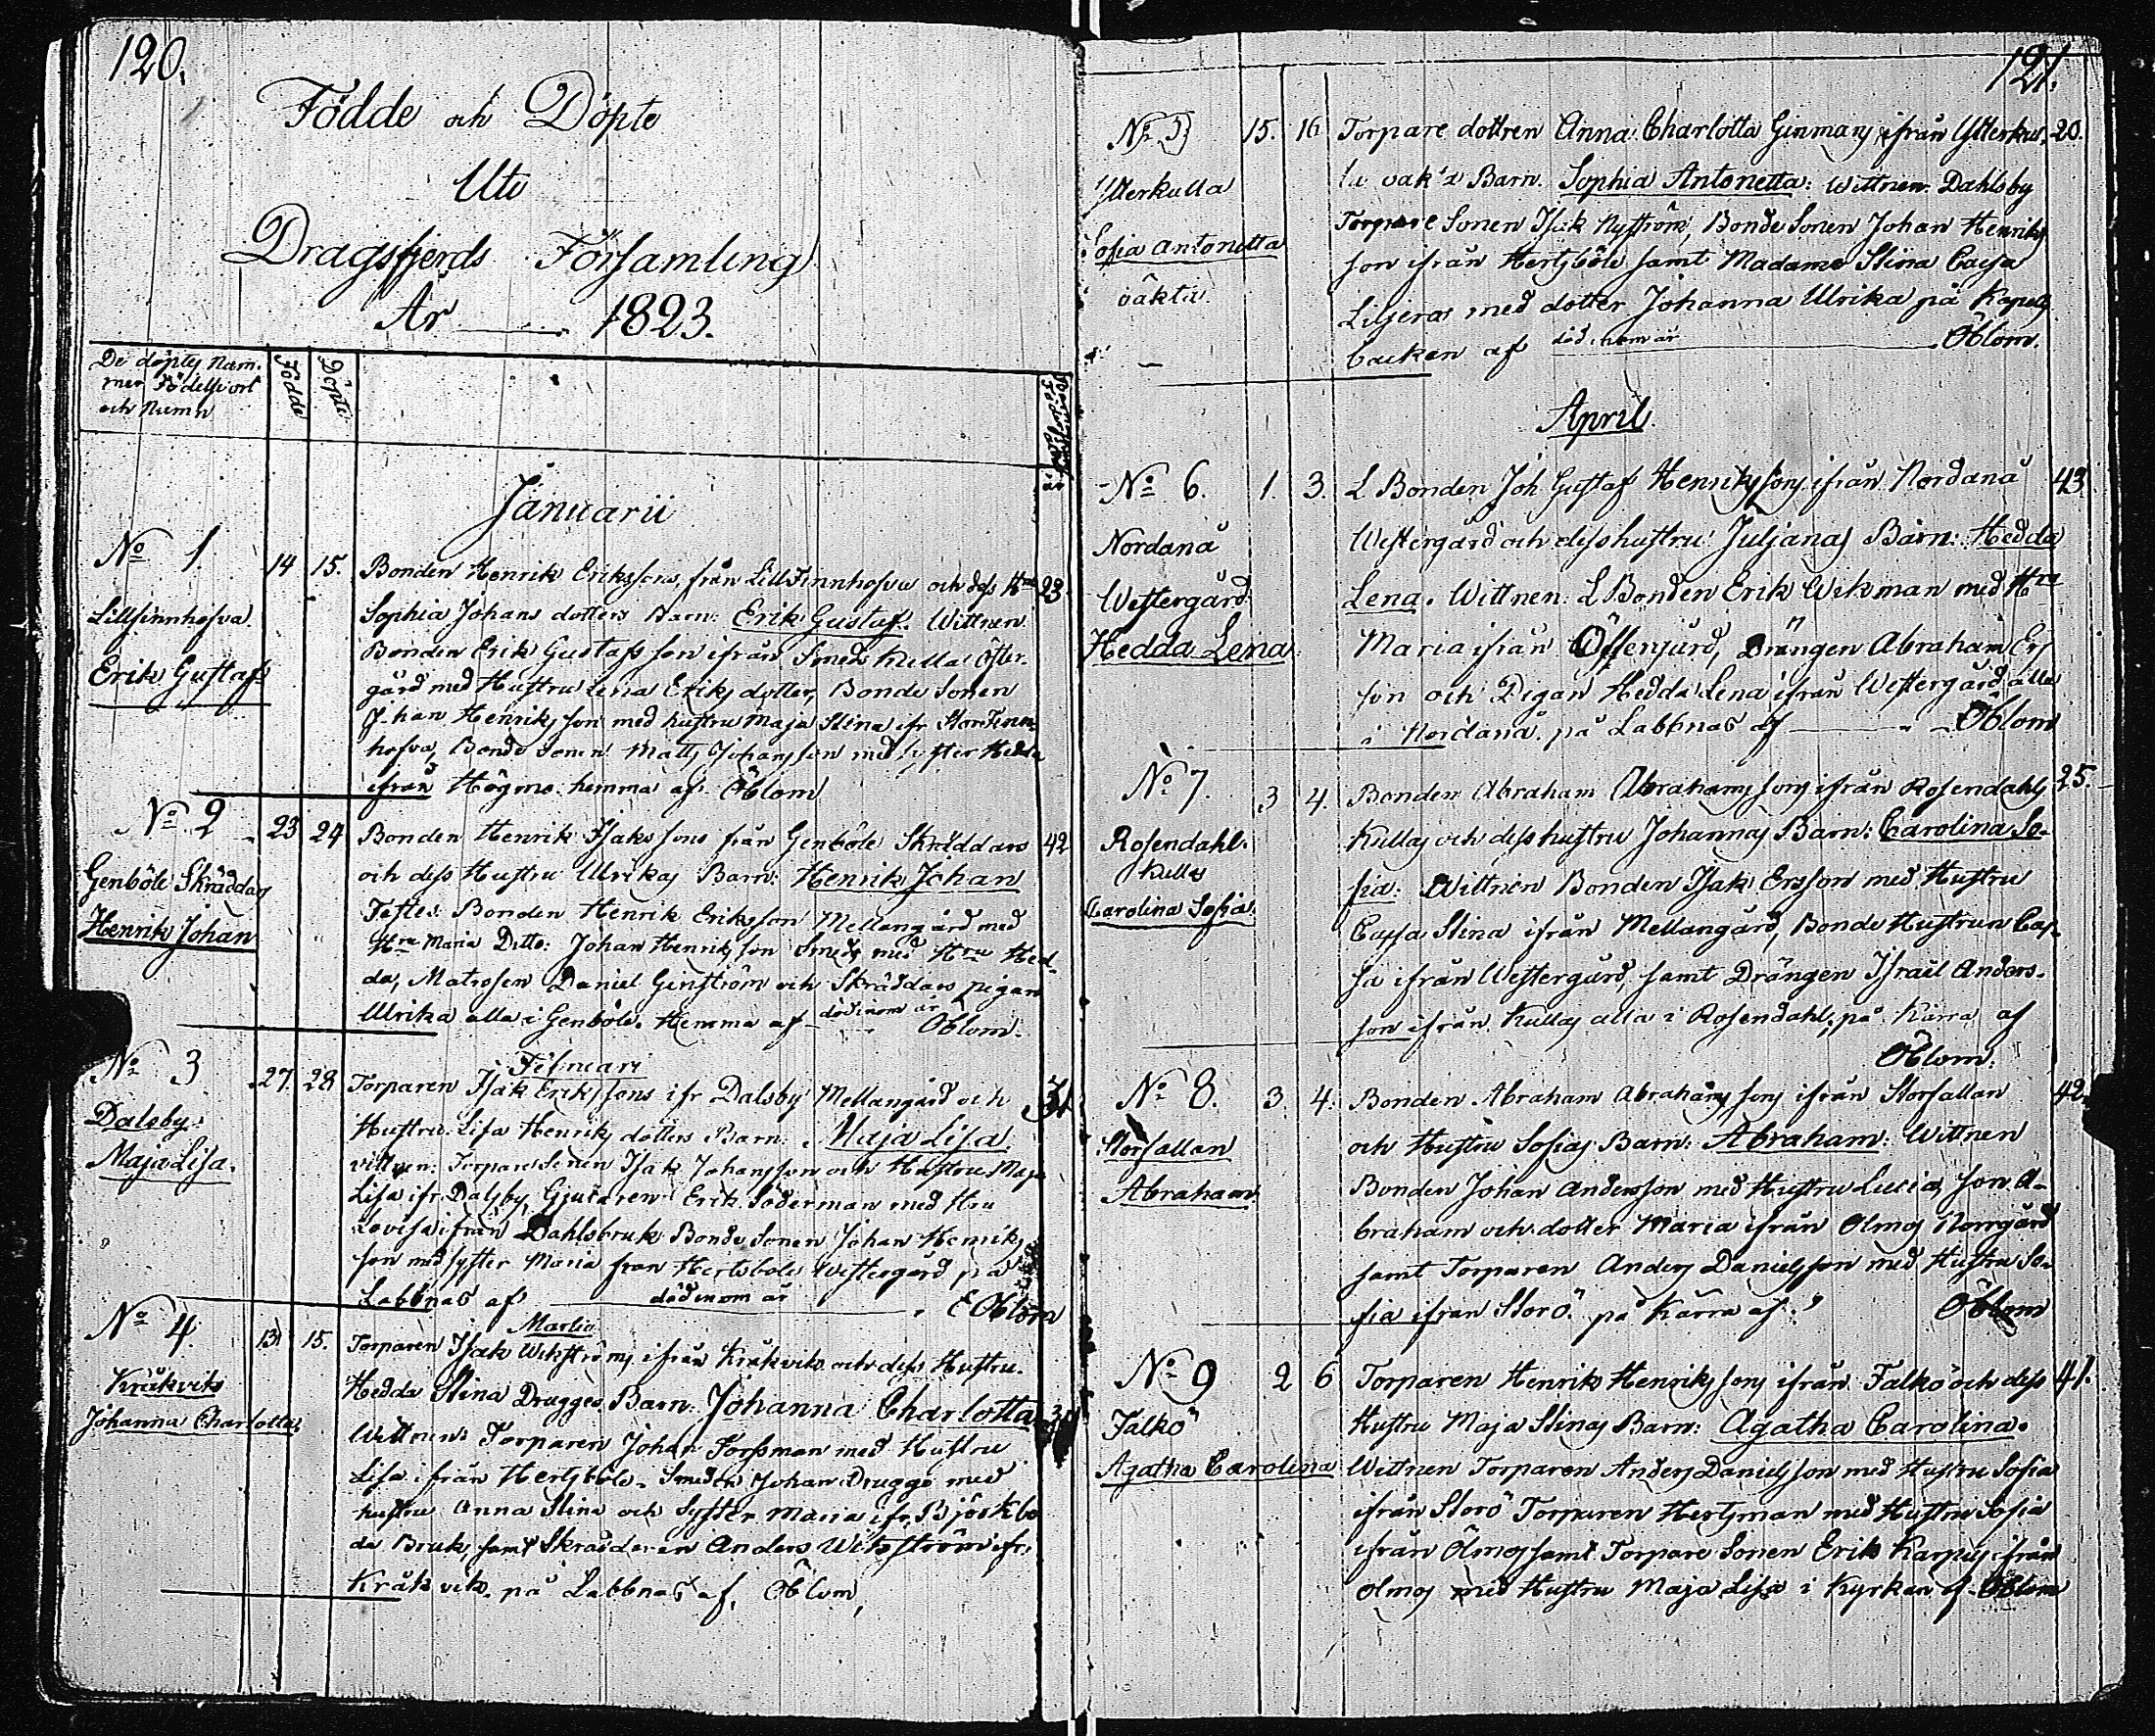 120.
Födde och Döpte
Uti
Dragsfjerds Församling
År 1823.
De döptes Nam-
mer Födelse ort
och Numr
Födde
Döpte
år
Januarii
No 1.
14 15.
Lillfinnhofva
Erik Gustaf
Bonden Henrik Erikssons från LillFinnhofva och dess Hu 23
Sophia Johans dotters Barn: Erik Gustaf. Wittnen
Bonden Erik Gustafsson ifrån Smeds Kulla Öster-
gård med Hustru Lena Eriks dotter, Bonde Sonen
Johan Henriksson med hustru Maja Stina ifr StorFinn-
hofva, Bonde Sonen Matts Johansson med syster Hedda
ifrån Högmo. hemma af Öblom
No 2
23 24
Genböle Skräddars
Henrik Johan
Bonden Henrik Isakssons från Genböle Skräddars 42
och dess Hustru Ulrikas Barn: Henrik Johan
Testes: Bonden Henrik Eriksson Mellangård med
Hru Maria Ditto: Johan Henriksson Smeds med Hru Hed-
da, Matrosen Daniel Genström och Skräddars pigan
Ulrika alla i Genböle. Hemma af död inom år Öblom.
Februari
No 3
27. 28
Dalsby
Maja Lisa.
Torparen Isak Erikssons ifr Dalsby Mellangård och 31
Hustru Lisa Henriks dotters Barn: Maja Lisa
vittnen: Torpare Sonen Isak Johansson och Hustru Maja
Lisa ifr Dalsby, Gjutaren Erik Söderman med Hru
Lovisa ifrån Dahlsbruk Bonde Sonen Johan Henriks
son med syster Maria från Hertsböle Westergård på
Labbnas af död inom år Öblom
Martii
No 4.
13 15.
Kråkvik
Johanna Charlotta
Torparen Isak Wikströms ifrån Kråkvik och dess Hustru
Hedda Stina Drugges Barn: Johanna Charlotta
Wittnen: Torparen Johan Forssman med Hustru
Lisa ifrån Hertsböle. Smeden Johan Drugge med
hustru Anna Stina och Syster Maria ifr. Björkbo
da Bruk, samt Skräddaren Anders Wikström ifr.
Kråkvik. på Labbnas af Öblom,
121.
No 5
15. 16
Ytterkulla
Sofia Antonetta
oäkta.
Torpare dottren Anna Charlotta Genmans ifrån Ytterkul- 20.
la oäkta Barn. Sophia Antonetta: Wittnen Dahlsby
Torpare Sonen Isak Nyström, Bonde Sonen Johan Henriks
son ifrån Hertsböle samt Madame Stina Caisa
Liljeros med dotter Johanna Ulrika på Kapell
backen af död inom år Öblom.
April.
No 6.
1. 3.
Nordanå
Westergård
Hedda Lena
L Bonden Joh Gustaf Henrikssons ifrån Nordanå 43
Westergård och dess hustru Juljanas Barn: Hedda
Lena. Wittnen: L Bonden Erik Wikman med Hru
Maria ifrån Östergård, Drängen Abraham Ers
son och Pigan Hedda Lena ifrån Westergård alla
i Nordanå. på Labbnas af Öblom
No 7.
3 4.
Rosendahl.
Kullas
Carolina Sofia.
Bonden Abraham Abrahamssons ifrån Rosendahls 25.
Kullas och dess hustru Johannas Barn: Carolina So-
fia. Wittnen Bonden Isak Ersson med Hustru
Caisa Stina ifrån Mellangård, Bonde Hustrun Caj-
sa ifrån Westergård samt Drängen Israel Anders-
son ifrån Kullas alla i Rosendahl, på Kärra af
Öblom.
No 8.
3. 4.
Storfallan
Abraham
Bonden Abraham Abrahamssons ifrån Storfallan 42.
och Hustru Sofias Barn: Abraham: Wittnen
Bonden Johan Andersson med Hustru Lucia, son A-
braham och dotter Maria ifrån Olmos Norrgård
samt Torparen Anders Danielsson med Hustru So-
fia ifrån Storö. på Kärra af Öblom
No 9
2 6
Falkö
Agatha Carolina
Torparen Henrik Henrikssons ifrån Falkö och dess 41.
Hustru Maja Stinas Barn: Agatha Carolina.
Wittnen Torparen Anders Danielsson med Hustru Sofia
ifrån Storö Torparen Hertsman med Hustru Sofia
ifrån Ölmos samt Torpare Sonen Erik Karpus ifrån
Olmos med Hustru Maja Lisa i Kyrkan af Öblom